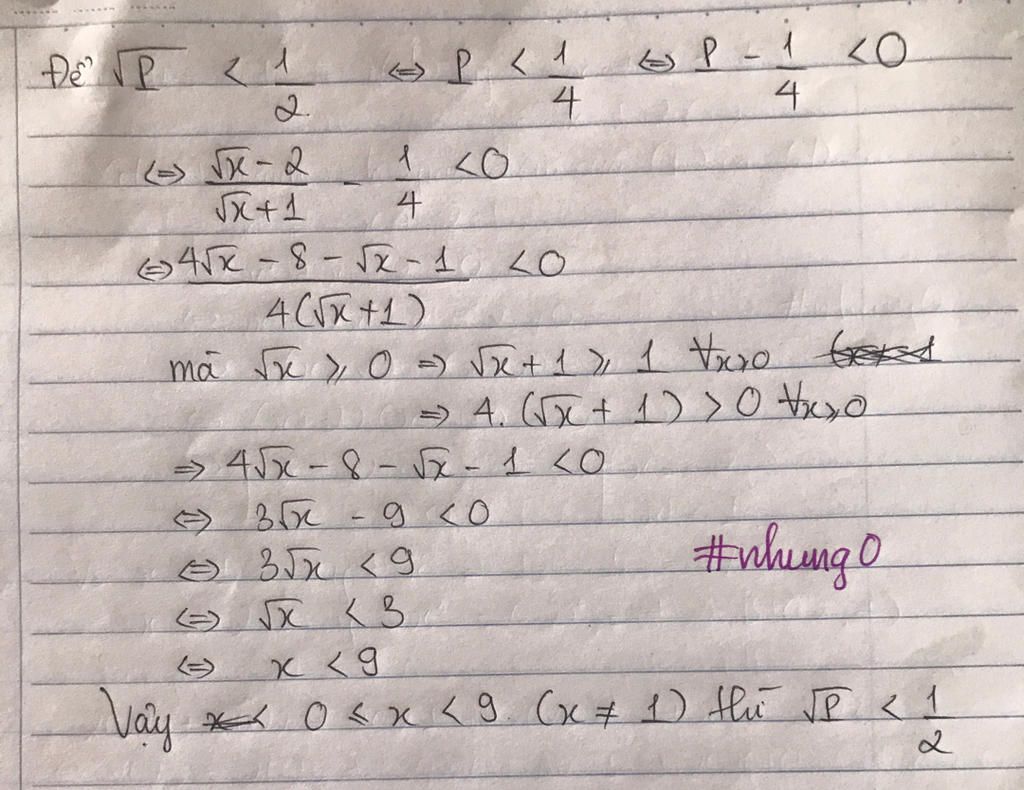 Để √P < 1/2 ⇔ P < 1/4 ⇔ P - 1/4 < 0
⇔ (√x - 2)/(√x + 1) - 1/4 < 0
⇔ (4√x - 8 - √x - 1)/(4(√x + 1)) < 0
mà √x ⩾ 0 ⇒ √x + 1 ⩾ 1 ∀x⩾0
⇒ 4. (√x + 1) > 0 ∀x⩾0
⇒ 4√x - 8 - √x - 1 < 0
⇔ 3√x - 9 < 0
⇔ 3√x < 9
#nhung0
⇔ √x < 3
⇔ x < 9
Vậy 0 ⩽ x < 9. (x ≠ 1) thì √P < 1/2